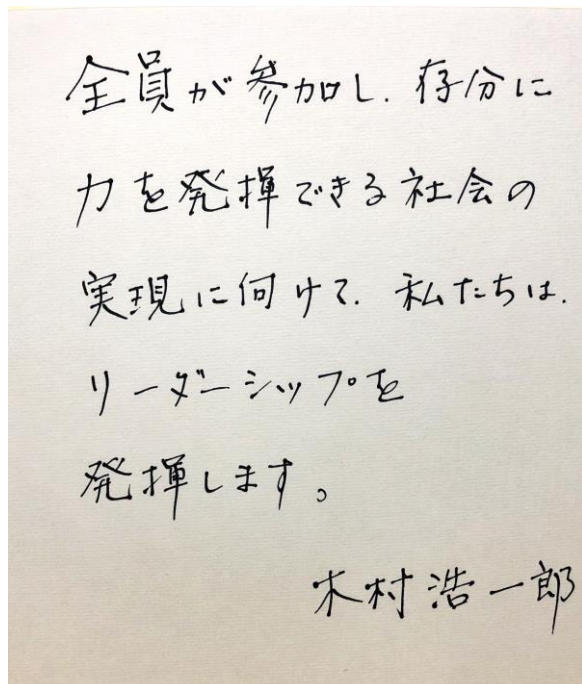 全員が参加し、存分に
力を発揮できる社会の
実現に向けて、私たちは、
リーダーシップを
発揮します。
木村浩一郎